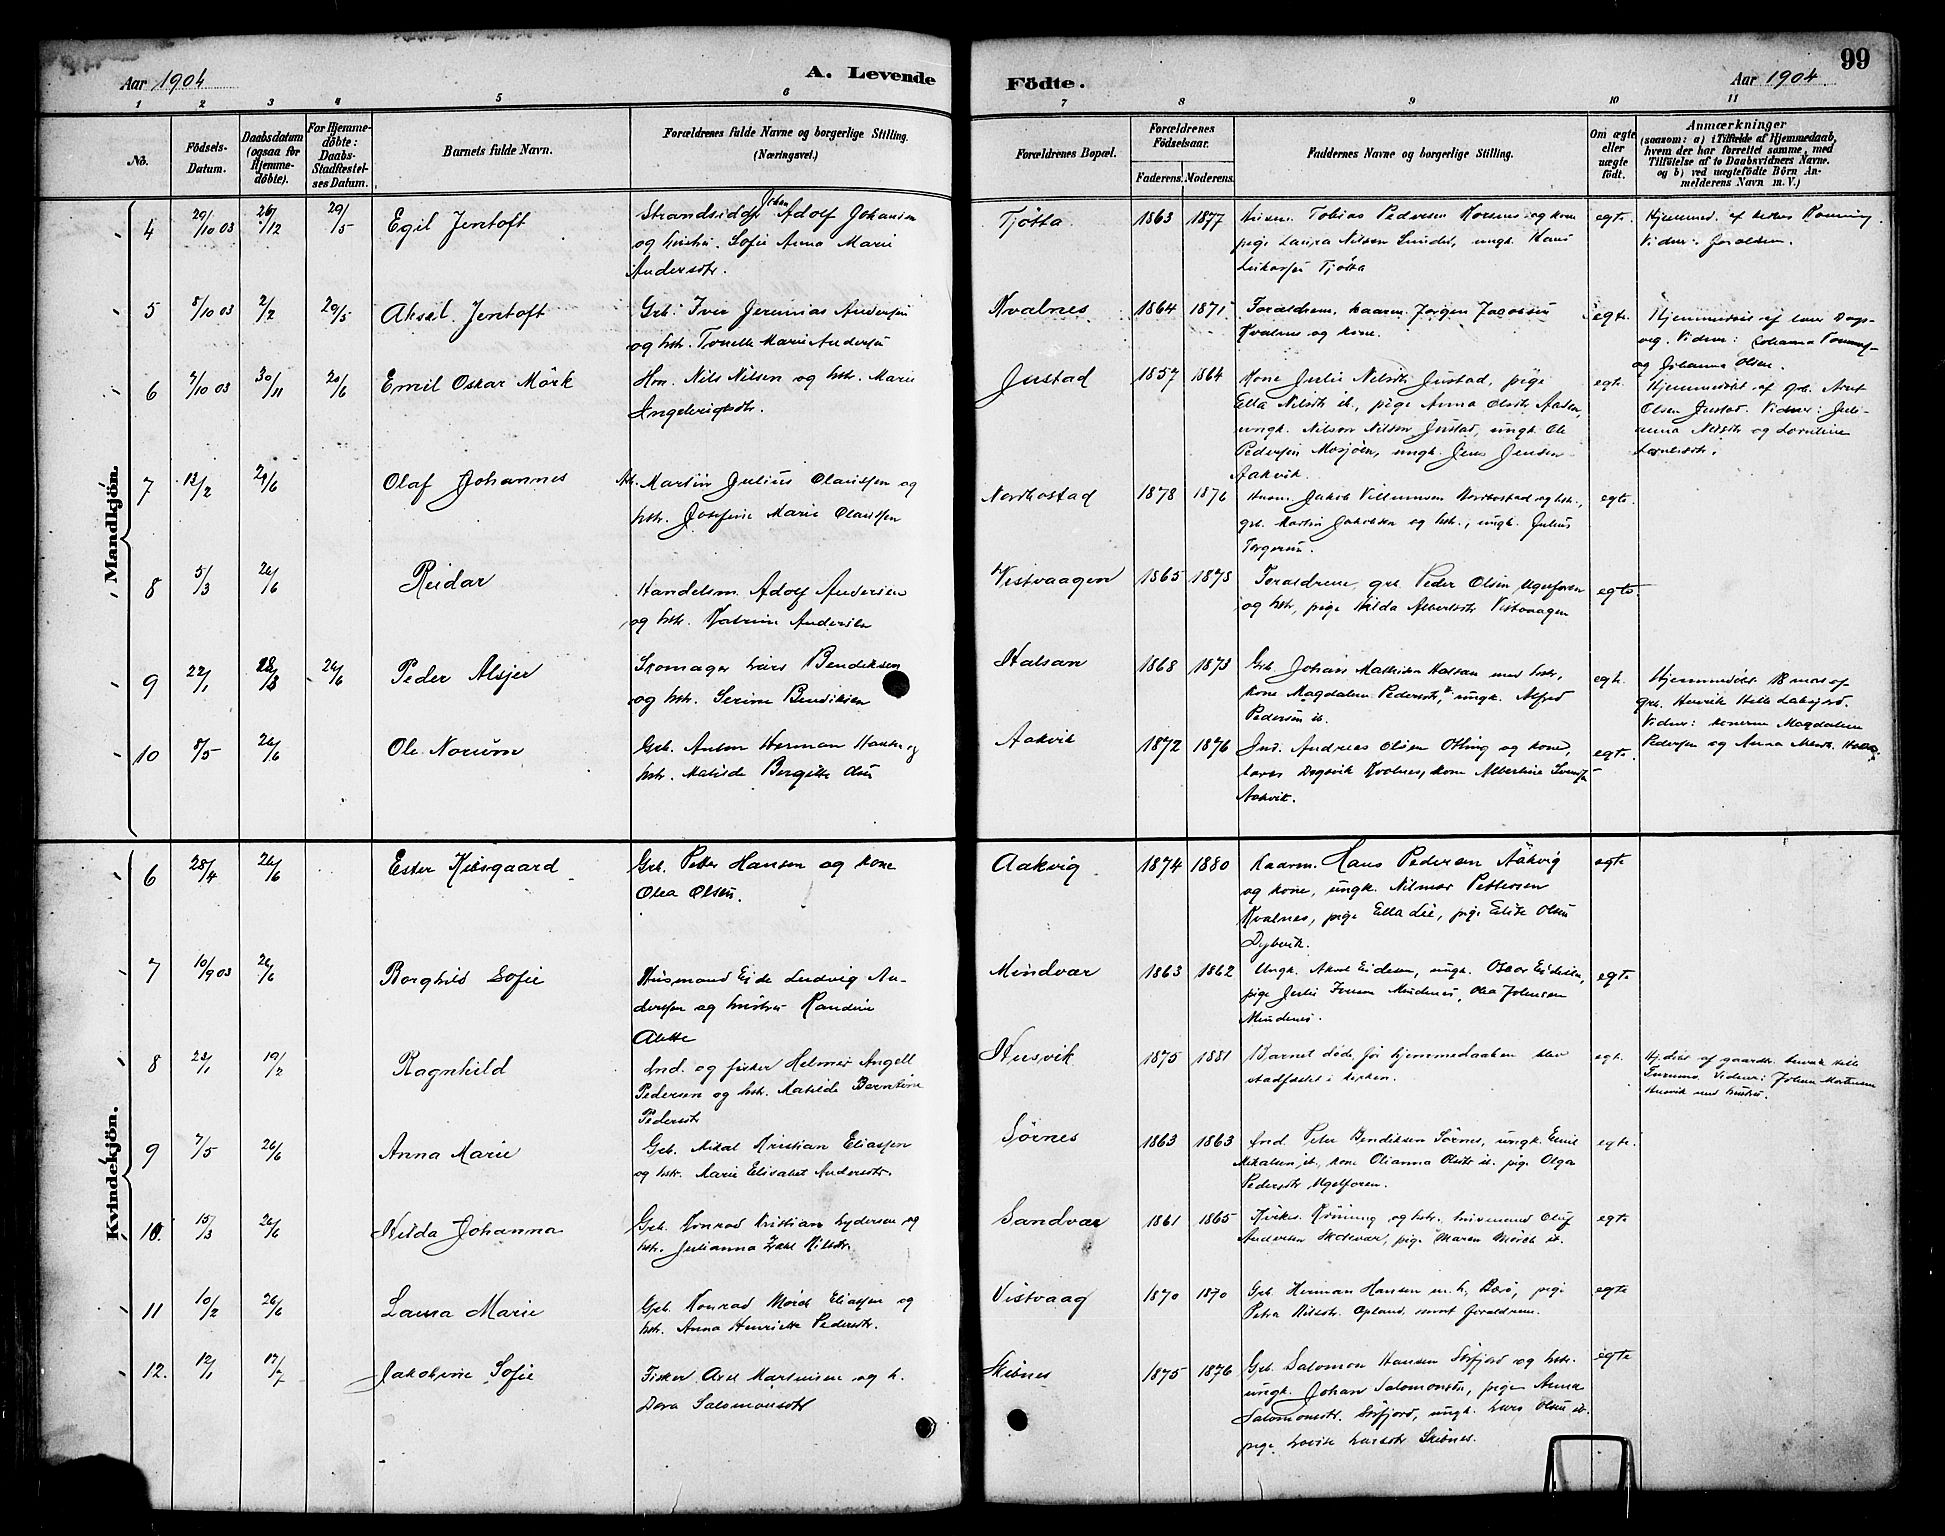 99
Aar 1904
A. Levende
Födte.
Aar 1904
1 2 3 4 5 6 7 8 9 10 11
No.
Födsels-
Datum.
Daabsdatum
(ogsaa for
Hjemme-
döbte).
For Hjemme-
döbte:
Daabs-
Stadfæstel-
ses Datum.
Barnets fulde Navn.
Forældrenes fulde Navne og borgerlige Stilling.
(Næringsvei.)
Forældrenes Bopæl.
Forældrenes
Födselsaar.
Faderens. Moderens.
Faddernes Navne og borgerlige Stilling.
Om ægte
eller
uægte
födt.
Anmærkninger
(saasom: a) i Tilfælde af Hjemmedaab,
hvem der har forrettet samme, med
Tilföielse af to Daabsvidners Navne.
og b) ved uægtefödte Börn An-
melderens Navn m. V.)
Mandkjön.
4 29/10 03 26/12 29/5 Egil Jentoft
Strandsidder Johan Adolf Johansen
og hustru Sofie Anna Marie
Andersdtr.
Tjötta 1863 1877
Tobias Pedersen og kone
pige Laura Nilsen Sundet, ungk. Hans
Tjötta
egte.
Hjemmed. af
Vidner:
5 5/10 03 2/2 29/5 Aksel Jentoft
Grb. Iver Jeremias Andersen
og hst. Marie Andersen
Kvalnes 1864 1871
Forældrene, kaarm. Jörgen Jacobsen
Kvalnes og kone.
egte.
Hjemmedöbt af
Vidner: Johanna
og Johanna Olsen.
6 7/10 03 30/11 20/6 Emil Oskar Mörk
Hm. Nils Nilsen og hst. Marie
Ingebrigtsdtr.
Justad 1857 1864
Kone Julie Nilsdtr Justad, pige
Ella Nilsdtr ib., pige Anna Olsdtr Aasen,
ungk. Nilson Nilsen Justad, ungk. Ole
Pedersen Mosjöen, ungk. Jens Jensen
Aakvik.
egte
Hjemmedöbt af grb. Arnt
Olsen Justad. Vidner: Juli-
anna Nilsdtr og
7 13/2 26/6 Olaf Johannes
Martin Julius Olaussen og
hst. Josefine Marie Olaussen
Nordbostad 1878 1876
Husm. Jakob Villumsen Nordbostad og hst.,
grb. Martin Jakobsen og hst., ungk. Julius
Torgersen.
egte.
8 5/3 26/6 Reidar
Handelsm. Adolf Andersen
og hst. Katrine Andersen
Vistvaagen 1865 1878
Forældrene, grb. Peder Olsen Ugelforen
og hst., pige Hilda Albertsdtr Vistvaagen
egte.
9 22/1 18/3 26/6 Peder Alsjer
Skomager Lars Bendiksen
og hst. Serine Bendiksen
Halsan 1868 1873
Grb. Johans Mathisen Halsan med hst.,
kone Magdalene Pedersdtr, ungk. Alfred
Pedersen ib.
egte.
Hjemmedöbt 18 mars af
grb. Henrik
Vidner: konerne Magdalene
Pedersen og Anna
10 5/5 26/6 Ole Norum
Grb. Anton Herman Hansen og
hst. Matilde Bergitte Olsen
Aakvik 1872 1876
Ind. Andreas Olsen Olting og kone,
Lars Dagsvik Kvalnes, kone Albertine
Aakvik.
egte.
Kvindekjön.
6 28/4 26/6 Ester Kibsgaard
Grb. Petter Hansen og kone
Olea Olsen.
Aakvig 1874 1880
Kaarm. Hans Pedersen Aakvig
og kone, ungk. Hilmar Pettersen
Kvalnes, pige Ella Lie, pige Elise Olsen
Dybvik.
egte
7 10/9 03 26/6 Borghild Sofie
Husmand Eide Ludvig An-
dersen og hustru Randine
Alette
Mindvær 1863 1862
Ungk. Aksel Eidesen, ungk. Oscar Eidesen,
pige Julie Iversen Mindnes, Olea Johnsen
Mindnes.
egte
8 23/1 19/2 Ragnhild
Ind. og fisker Helmer Angell
Pedersen og hst. Matilde Berntine
Pedersdtr
Husvik 1875 1881
Barnet döde, för hjemmedaaben blev
stadfæstet i kirken.
egte.
Hj.döbt af gaardbr.
Vidner: Johan Mortensen
Husvik med hustru.
9 7/5 26/6 Anna Marie
Grb. Mikal Kristian Eliassen
og hst. Marie Elisabet Andersdtr.
Sörnes 1863 1863
Ind. Peter Bendiksen Sörnes, ungk. Emil
Mikalsen ib., kone Olianna Olsdtr ib. pige Olga
Pedersdtr Ugelforen.
egte.
10. 15/3 26/6 Hilda Johanna
Grb. Konrad Kristian Lydersen og
hst. Julianna Nilsdtr.
Sandvær 1861 1865
Kirkes. Kröning og hst. husmand Oluf
Andersen Skaluvær, pige Maren Mörch ib.
egte
11 10/2 26/6 Laura Marie
Grb. Konrad Mörch Eliassen og
hst. Anna Henrikke Pedersdtr.
Vistvaag 1870 1870
Grb. Herman Hansen m. h., Bærö, pige
Petra Nilsdtr. Opland samt foreldrene.
egte
12. 12/1 17/7 Jakobine Sofie
Fisker Axel Martinisen og h.
Dora Salomonsdtr
Skibnes 1875 1876
Grb. Salomon Hansen Sörfjord og hst.
ungk. Johan Salomonsen, pige Anna
Salomonsdtr. Sörfjord, ungk. Lars Olsen ib.
pige Lovise Larsdtr Skibnes.
egte